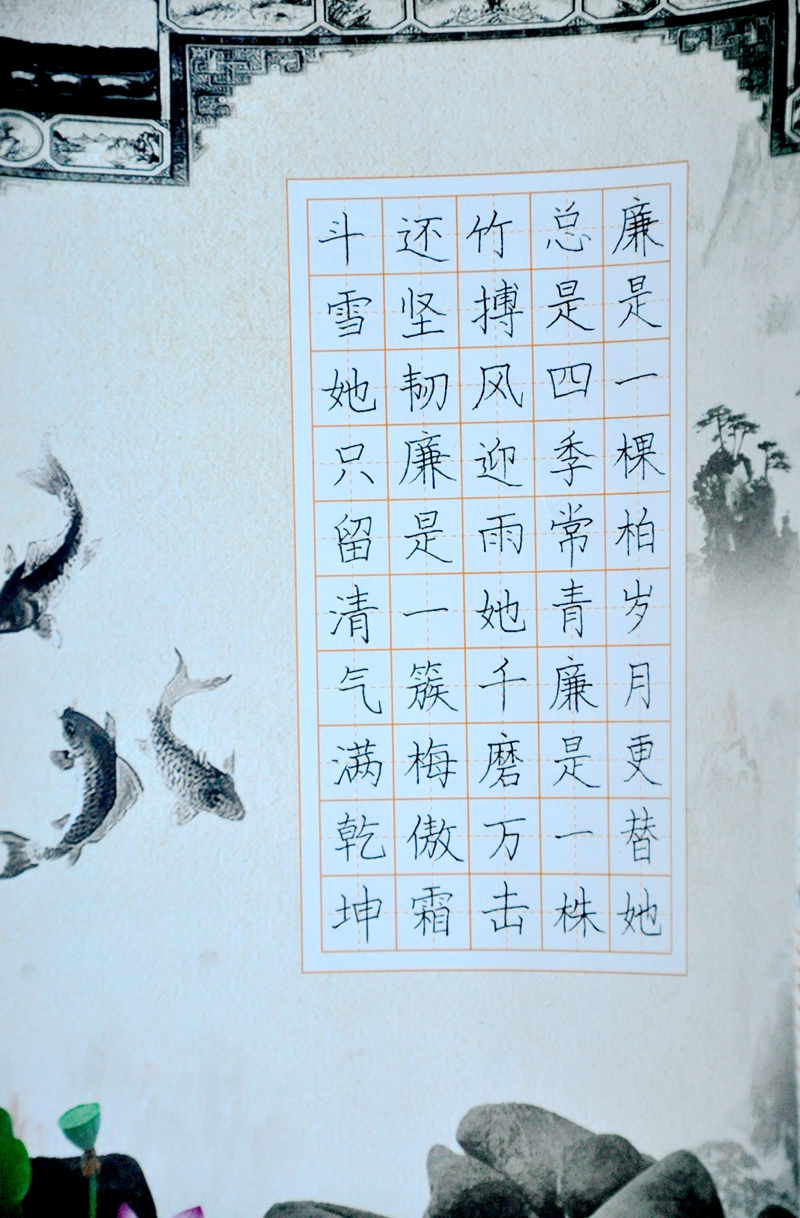 廉是一棵柏岁月更替她
总是四季常青廉是一株
竹搏风迎雨她千磨万击
还坚韧廉是一簇梅傲霜
斗雪她只留清气满乾坤